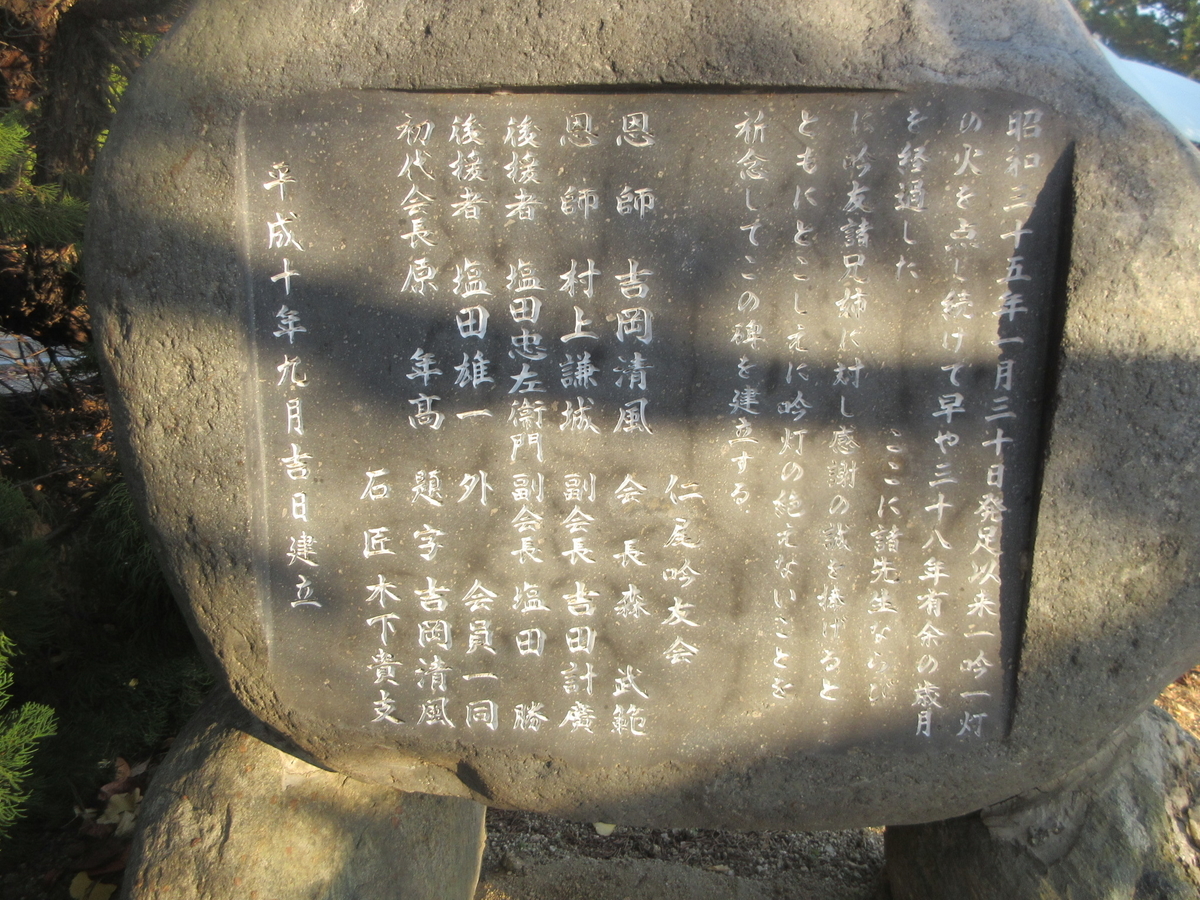 昭和三十五年一月三十日発足以来一吟一灯
の火を点し続けて早や三十八年有余の歳月
を経過した ここに諸先生ならび
に吟友諸兄姉に対し感謝の誠を捧げると
ともにとこしえに吟灯の絶えないことを
祈念してこの碑を建立する
仁尾吟友会
恩師 吉岡清風 会長 森 武範
恩師 村上謙城 副会長 吉田計廣
後援者 塩田忠左衛門 副会長 塩田 勝
後援者 塩田雄一 外 会員一同
初代会長 原 年髙 題字 吉岡清風
石匠 木下貴支
平成十年九月吉日建立